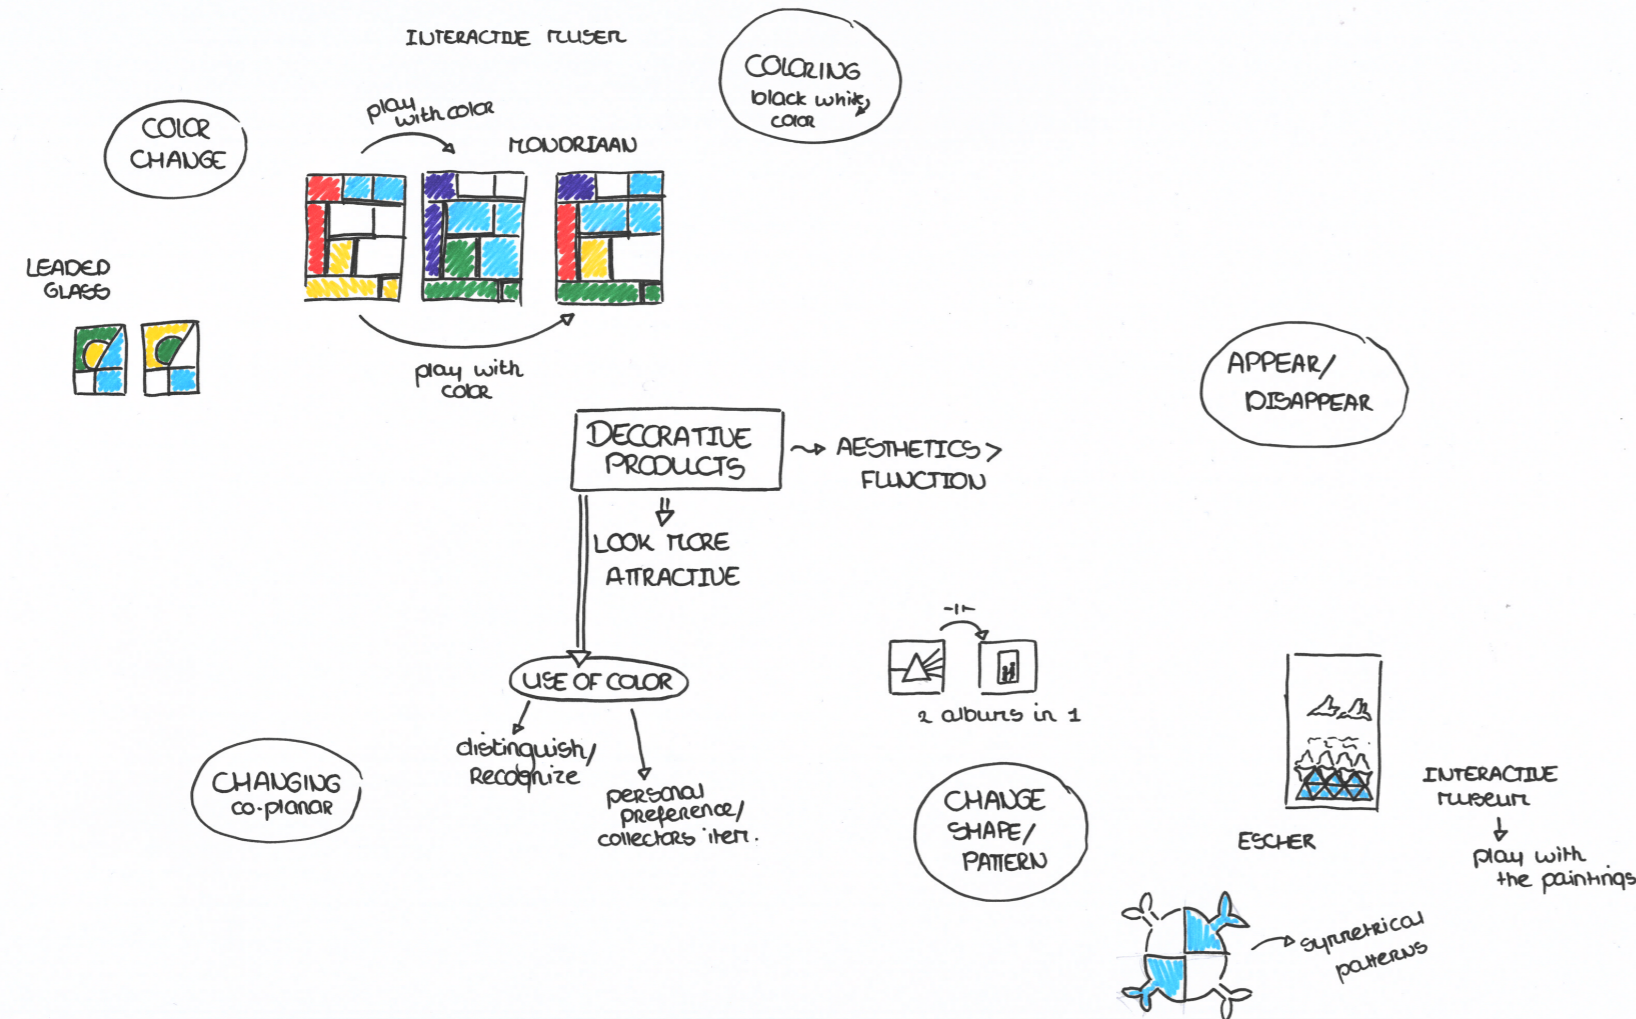 INTERACTIVE MUSEM
COLORING
black white,
color
play
with color
COLOR
CHANGE
MONDRIAAN
LEADED
GLASS
play with
color
APPEAR/
DISAPPEAR
DECORATIVE
PRODUCTS
AESTHETICS >
FUNCTION
LOOK MORE
ATTRACTIVE
USE OF COLOR
distinguish/
Recognize
personal
preference/
collectors item.
2 albums in 1
CHANGING
co-planar
CHANGE
SHAPE/
PATTERN
ESCHER
INTERACTIVE
museum
play with
the paintings
symmetrical
patterns